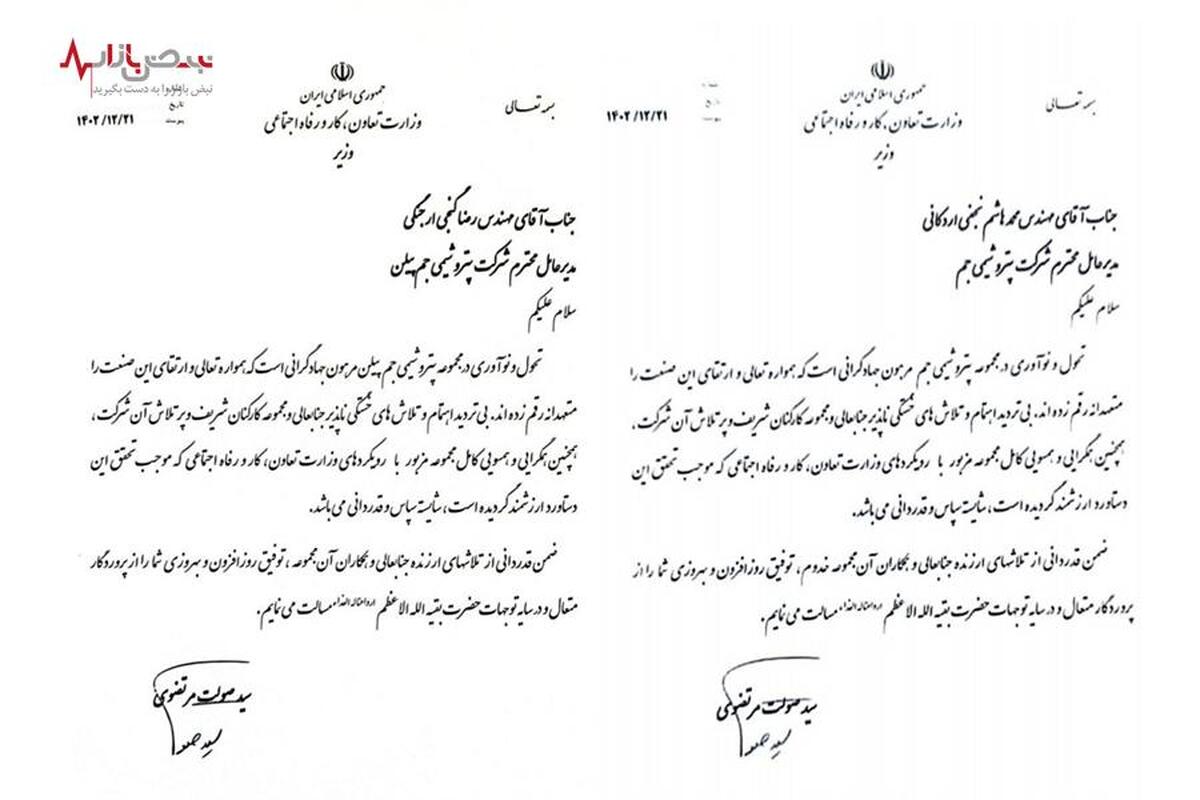 نبض بازار
نبض بازار را به دست بگیرید
بسمه تعالی
جمهوری اسلامی ایران
وزارت تعاون، کار و رفاه اجتماعی
وزیر
۱۴۰۲/۱۲/۲۱
جناب آقای مهندس محمد هاشم نجفی اردکانی
مدیرعامل محترم شرکت پتروشیمی جم
سلام علیکم
تحول و نوآوری در مجموعه پتروشیمی جم مرهون جهادگرانی است که همواره تعالی و ارتقای این صنعت را
متعهدانه رقم زده اند. بی تردید اهتمام و تلاش های خستگی ناپذیر جنابعالی و مجموعه کارکنان شریف و پر تلاش آن شرکت،
همچنین همگرایی و همسویی کامل مجموعه مزبور با رویکردهای وزارت تعاون، کار و رفاه اجتماعی که موجب تحقق این
دستاورد ارزشمند گردیده است، شایسته سپاس و قدردانی می باشد.
ضمن قدردانی از تلاشهای ارزنده جنابعالی و همکاران آن مجموعه خدوم، توفیق روزافزون و بهروزی شما را از
پروردگار متعال و در سایه توجهات حضرت بقیه الله الاعظم ارواحنا له الفداء مسالت می نمایم.
سید صولت مرتضوی
بسمه تعالی
جمهوری اسلامی ایران
وزارت تعاون، کار و رفاه اجتماعی
وزیر
تاریخ
پیوست
۱۴۰۲/۱۲/۲۱
جناب آقای مهندس رضا گنجی ارجنگی
مدیرعامل محترم شرکت پتروشیمی جم پیلن
سلام علیکم
تحول و نوآوری در مجموعه پتروشیمی جم پیلن مرهون جهادگرانی است که همواره تعالی و ارتقای این صنعت را
متعهدانه رقم زده اند. بی تردید اهتمام و تلاش های خستگی ناپذیر جنابعالی و مجموعه کارکنان شریف و پر تلاش آن شرکت،
همچنین همگرایی و همسویی کامل مجموعه مزبور با رویکردهای وزارت تعاون، کار و رفاه اجتماعی که موجب تحقق این
دستاورد ارزشمند گردیده است، شایسته سپاس و قدردانی می باشد.
ضمن قدردانی از تلاشهای ارزنده جنابعالی و همکاران آن مجموعه، توفیق روزافزون و بهروزی شما را از پروردگار
متعال و در سایه توجهات حضرت بقیه الله الاعظم ارواحنا له الفداء مسالت می نمایم.
سید صولت مرتضوی